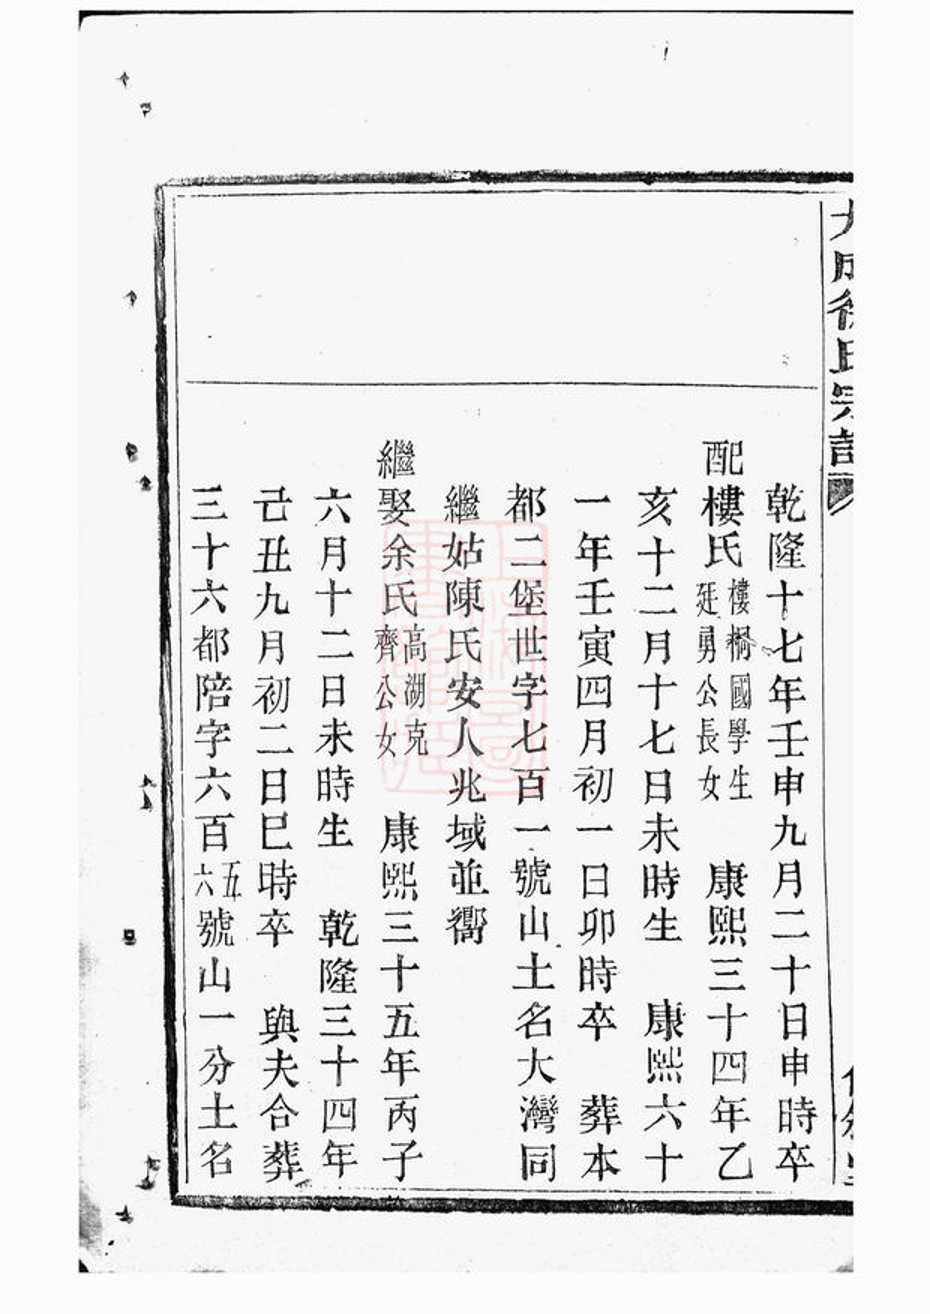 大成徐氏宗譜
乾隆十七年壬申九月二十日申時卒
配樓氏樓桐國學生廷勇公長女 康熙三十四年乙
亥十二月十七日未時生 康熙六十
一年壬寅四月初一日卯時卒 葬本
都二堡世字七百一號山土名大灣同
繼姑陳氏安人兆域並嚮
繼娶余氏高湖克齊公女 康熙三十五年丙子
六月十二日未時生 乾隆三十四年
己丑九月初二日巳時卒 與夫合葬
三十六都陪字六百五六號山一分土名